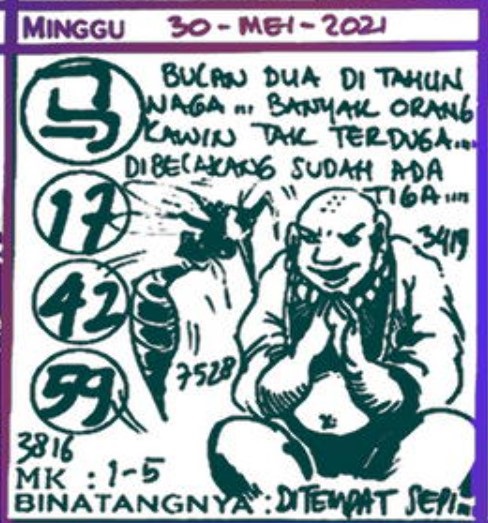 MINGGU 30-MEI-2021
马
BULAN DUA DI TAHUN
NAGA... BANYAK ORANG
KAWIN TAK TERDUGA....
DIBELAKANG SUDAH ADA
TIGA....
17
3419
42
7528
59
3816
MK : 1-5
BINATANGNYA : DITEMPAT SEPI...